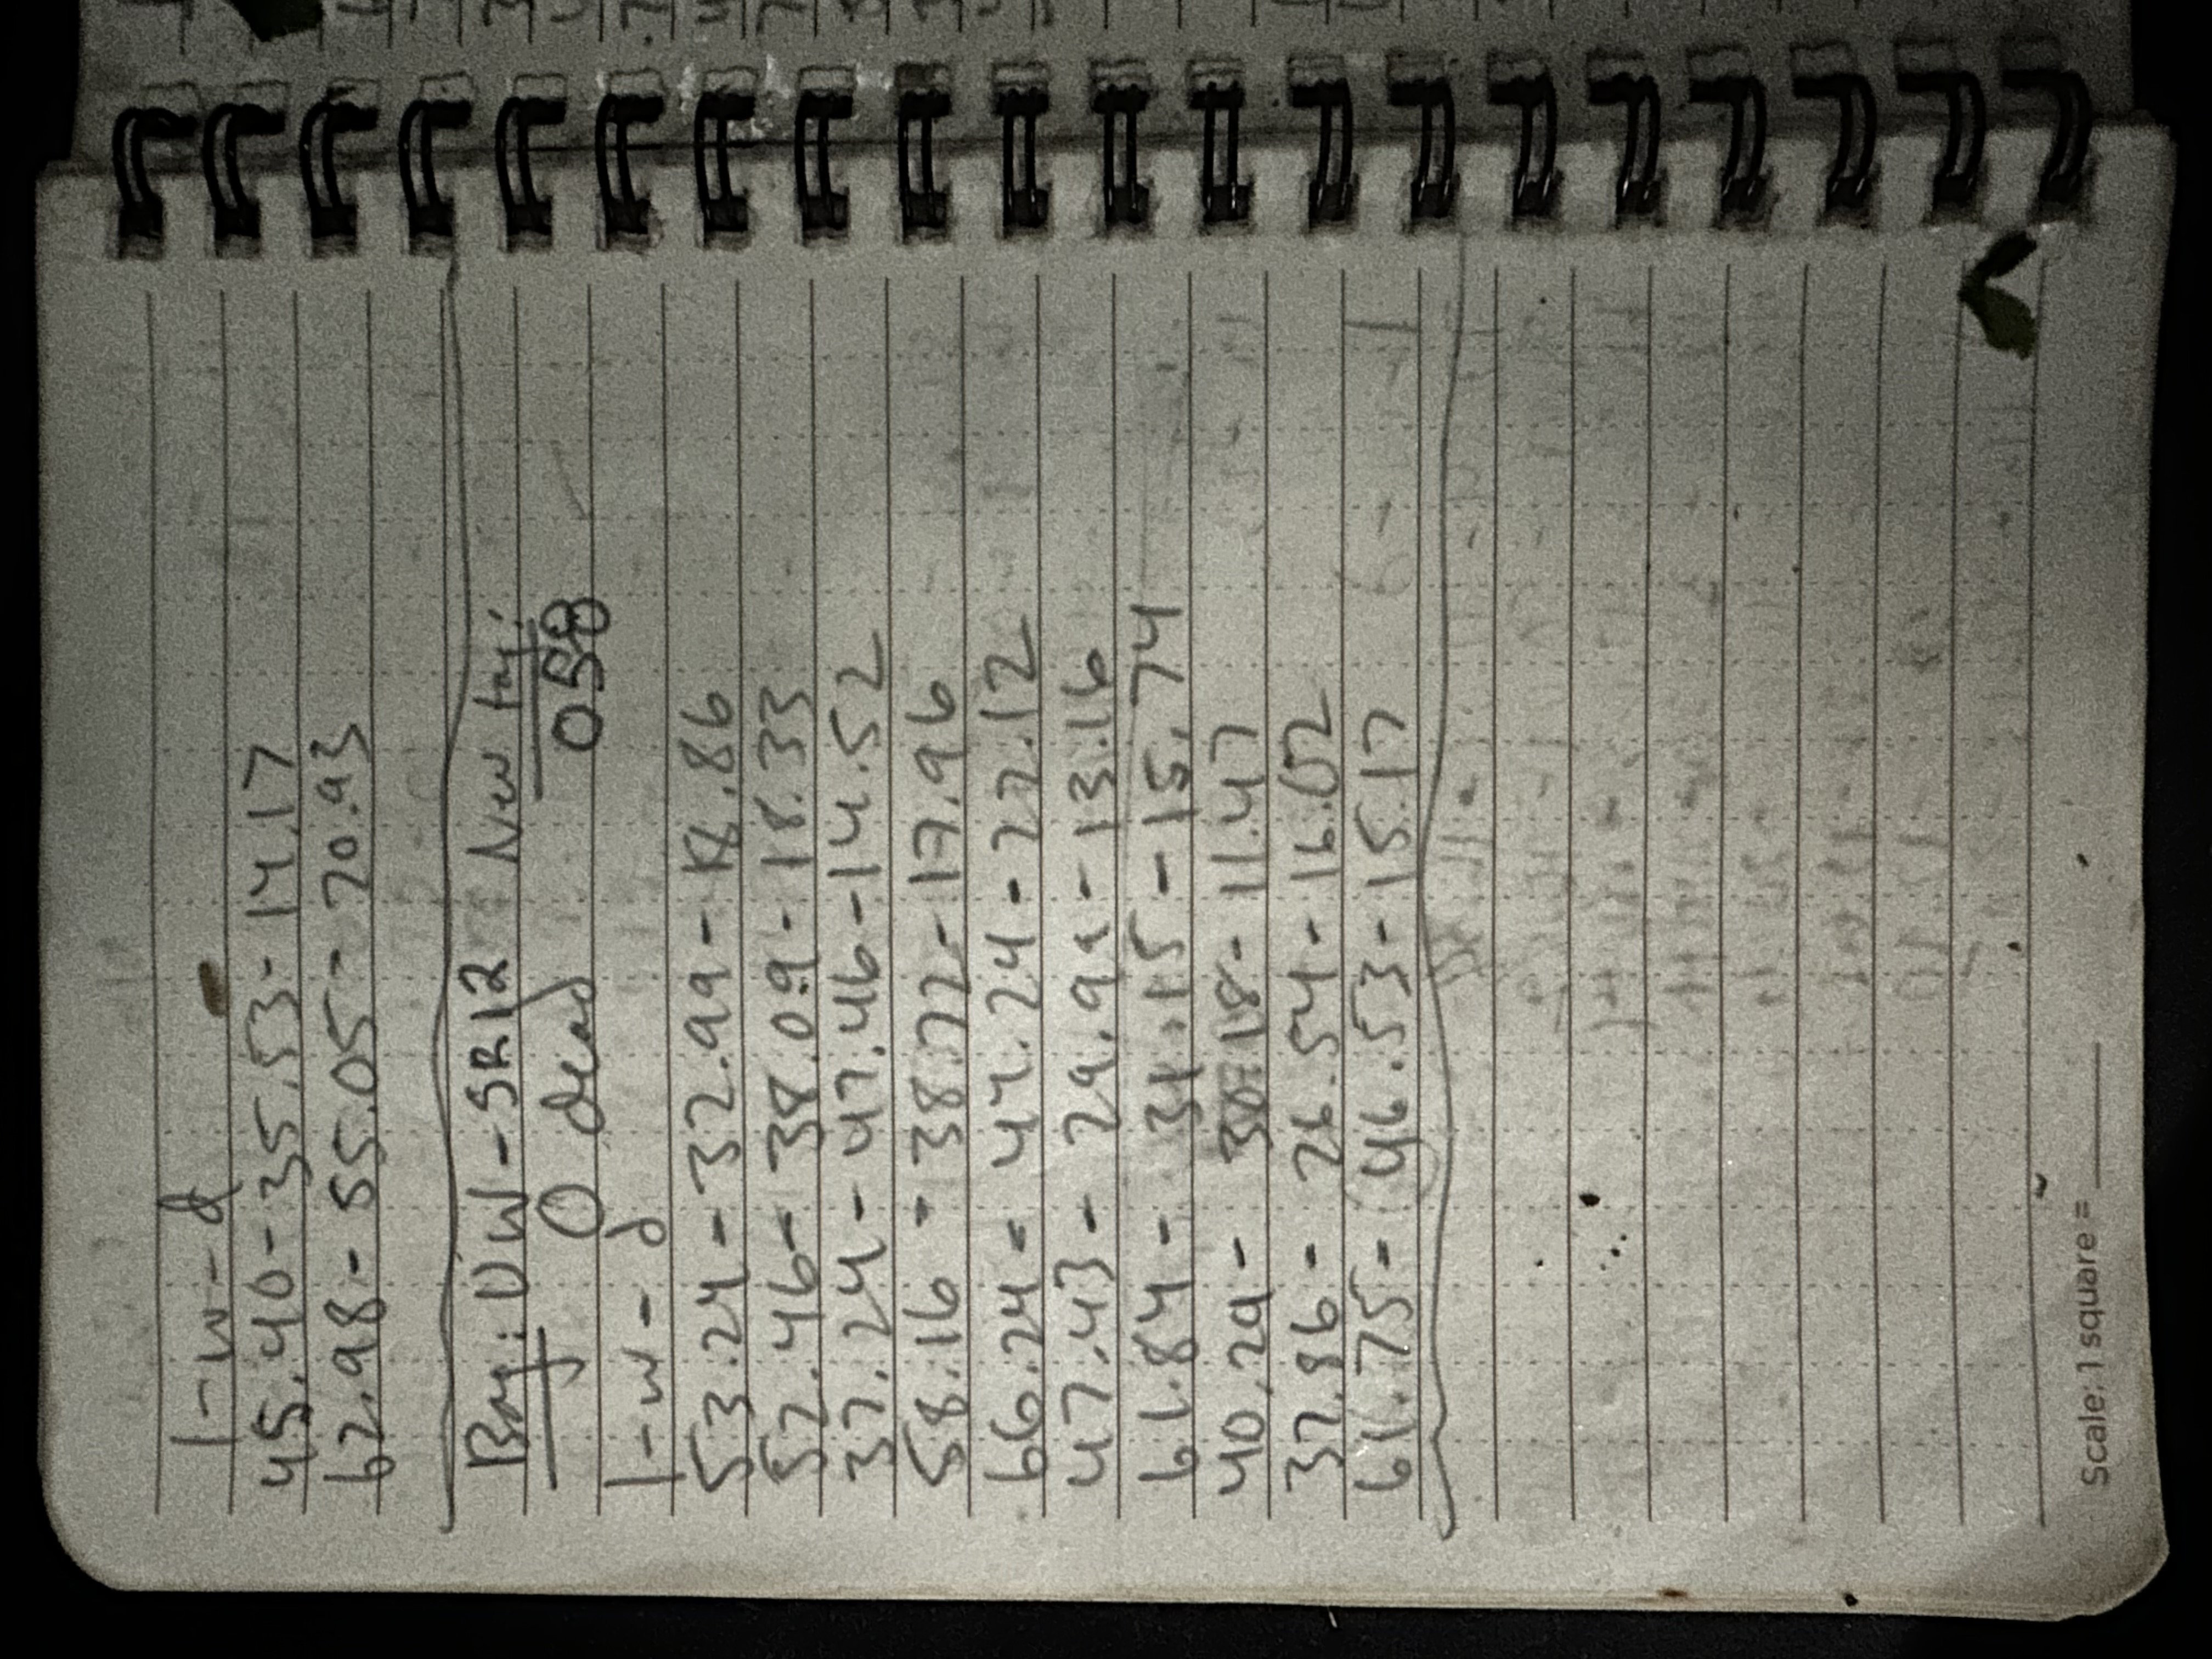 l-w-d
45.40-35.53-14.17
62.98-55.05-20.93
Bag: UW-SR12 New tag:
0 dead 058
l-w-d
53.24-32.99-18.86
52.46-38.09-18.33
37.24-47.46-14.52
58.16-38.72-17.96
66.24-44.24-22.12
47.43-29.99-13.16
61.84-31.15-15.74
40.29-30.18-11.47
37.86-26.54-16.02
61.75-46.53-15.17
Scale: 1 square =